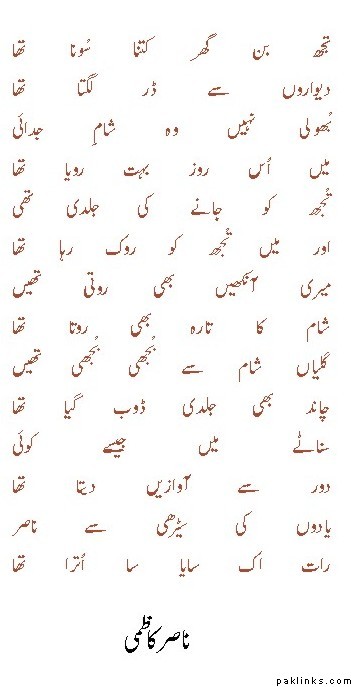 تجھ بن گھر کتنا سُونا تھا
دیواروں سے ڈر لگتا تھا
بُھولی نہیں وہ شامِ جدائی
میں اُس روز بہت رویا تھا
تُجھ کو جانے کی جلدی تھی
اور میں تُجھ کو روک رہا تھا
میری آنکھیں بھی روتی تھیں
شام کا تارہ بھی روتا تھا
گلیاں شام سے بُجھی بُجھی تھیں
چاند بھی جلدی ڈوب گیا تھا
سناٹے میں جیسے کوئی
دور سے آوازیں دیتا تھا
یادوں کی سیڑھی سے ناصر
رات اک سایا سا اُترا تھا
ناصر کاظمی
paklinks.com